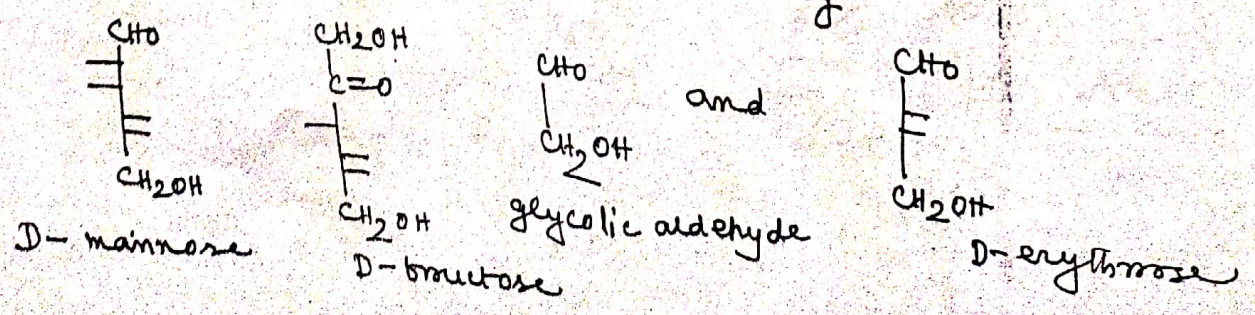 CHO
CH2OH
D- mannose
CH2OH
C=O
CH2OH
D- fructose
CHO
CH2OH
glycolic aldehyde
and
CHO
CH2OH
D- erythrose